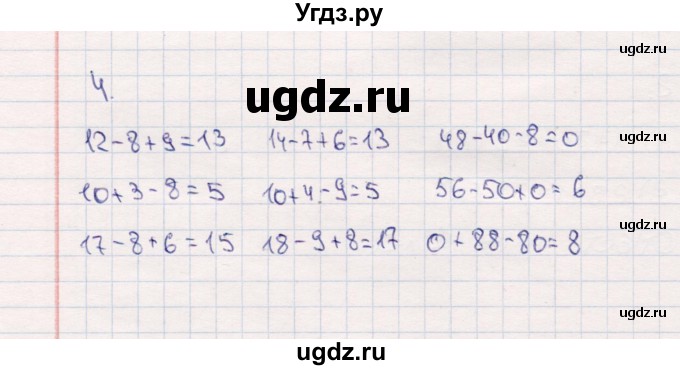 Угдз.ру
ugdz.ru
4.
ugdz.ru
12-8+9=13 14-7+6=13 48-40-8=0
ugdz.ru
10+3-8=5 10+4-9=5 56-50+0=6
17-8+6=15 18-9+8=17 0+88-80=8
ugdz.ru
ugdz.ru
ugdz.ru